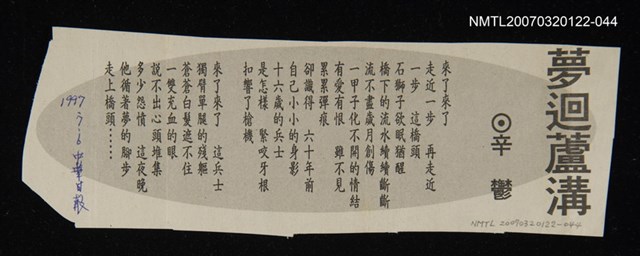 NMTL20070320122-044
夢迴蘆溝
⊙辛鬱
來了來了
走近一步 再走近
一步 這橋頭
石獅子欲眠猶醒
橋下的流水續續斷斷
流不盡歲月創傷
一甲子化不開的情結
有愛有恨 雖不見
累累彈痕
卻識得 六十年前
自己小小的身影
十六歲的兵士
是怎樣 緊咬牙根
扣響了槍機
來了來了 這兵士
獨臂單腿的殘軀
蒼蒼白髮遮不住
一雙充血的眼
說不出心頭堆集
多少怨憤 這夜晚
他循著夢的腳步
走上橋頭……
1997.7.6中華日報
NMTL 20070320122-044